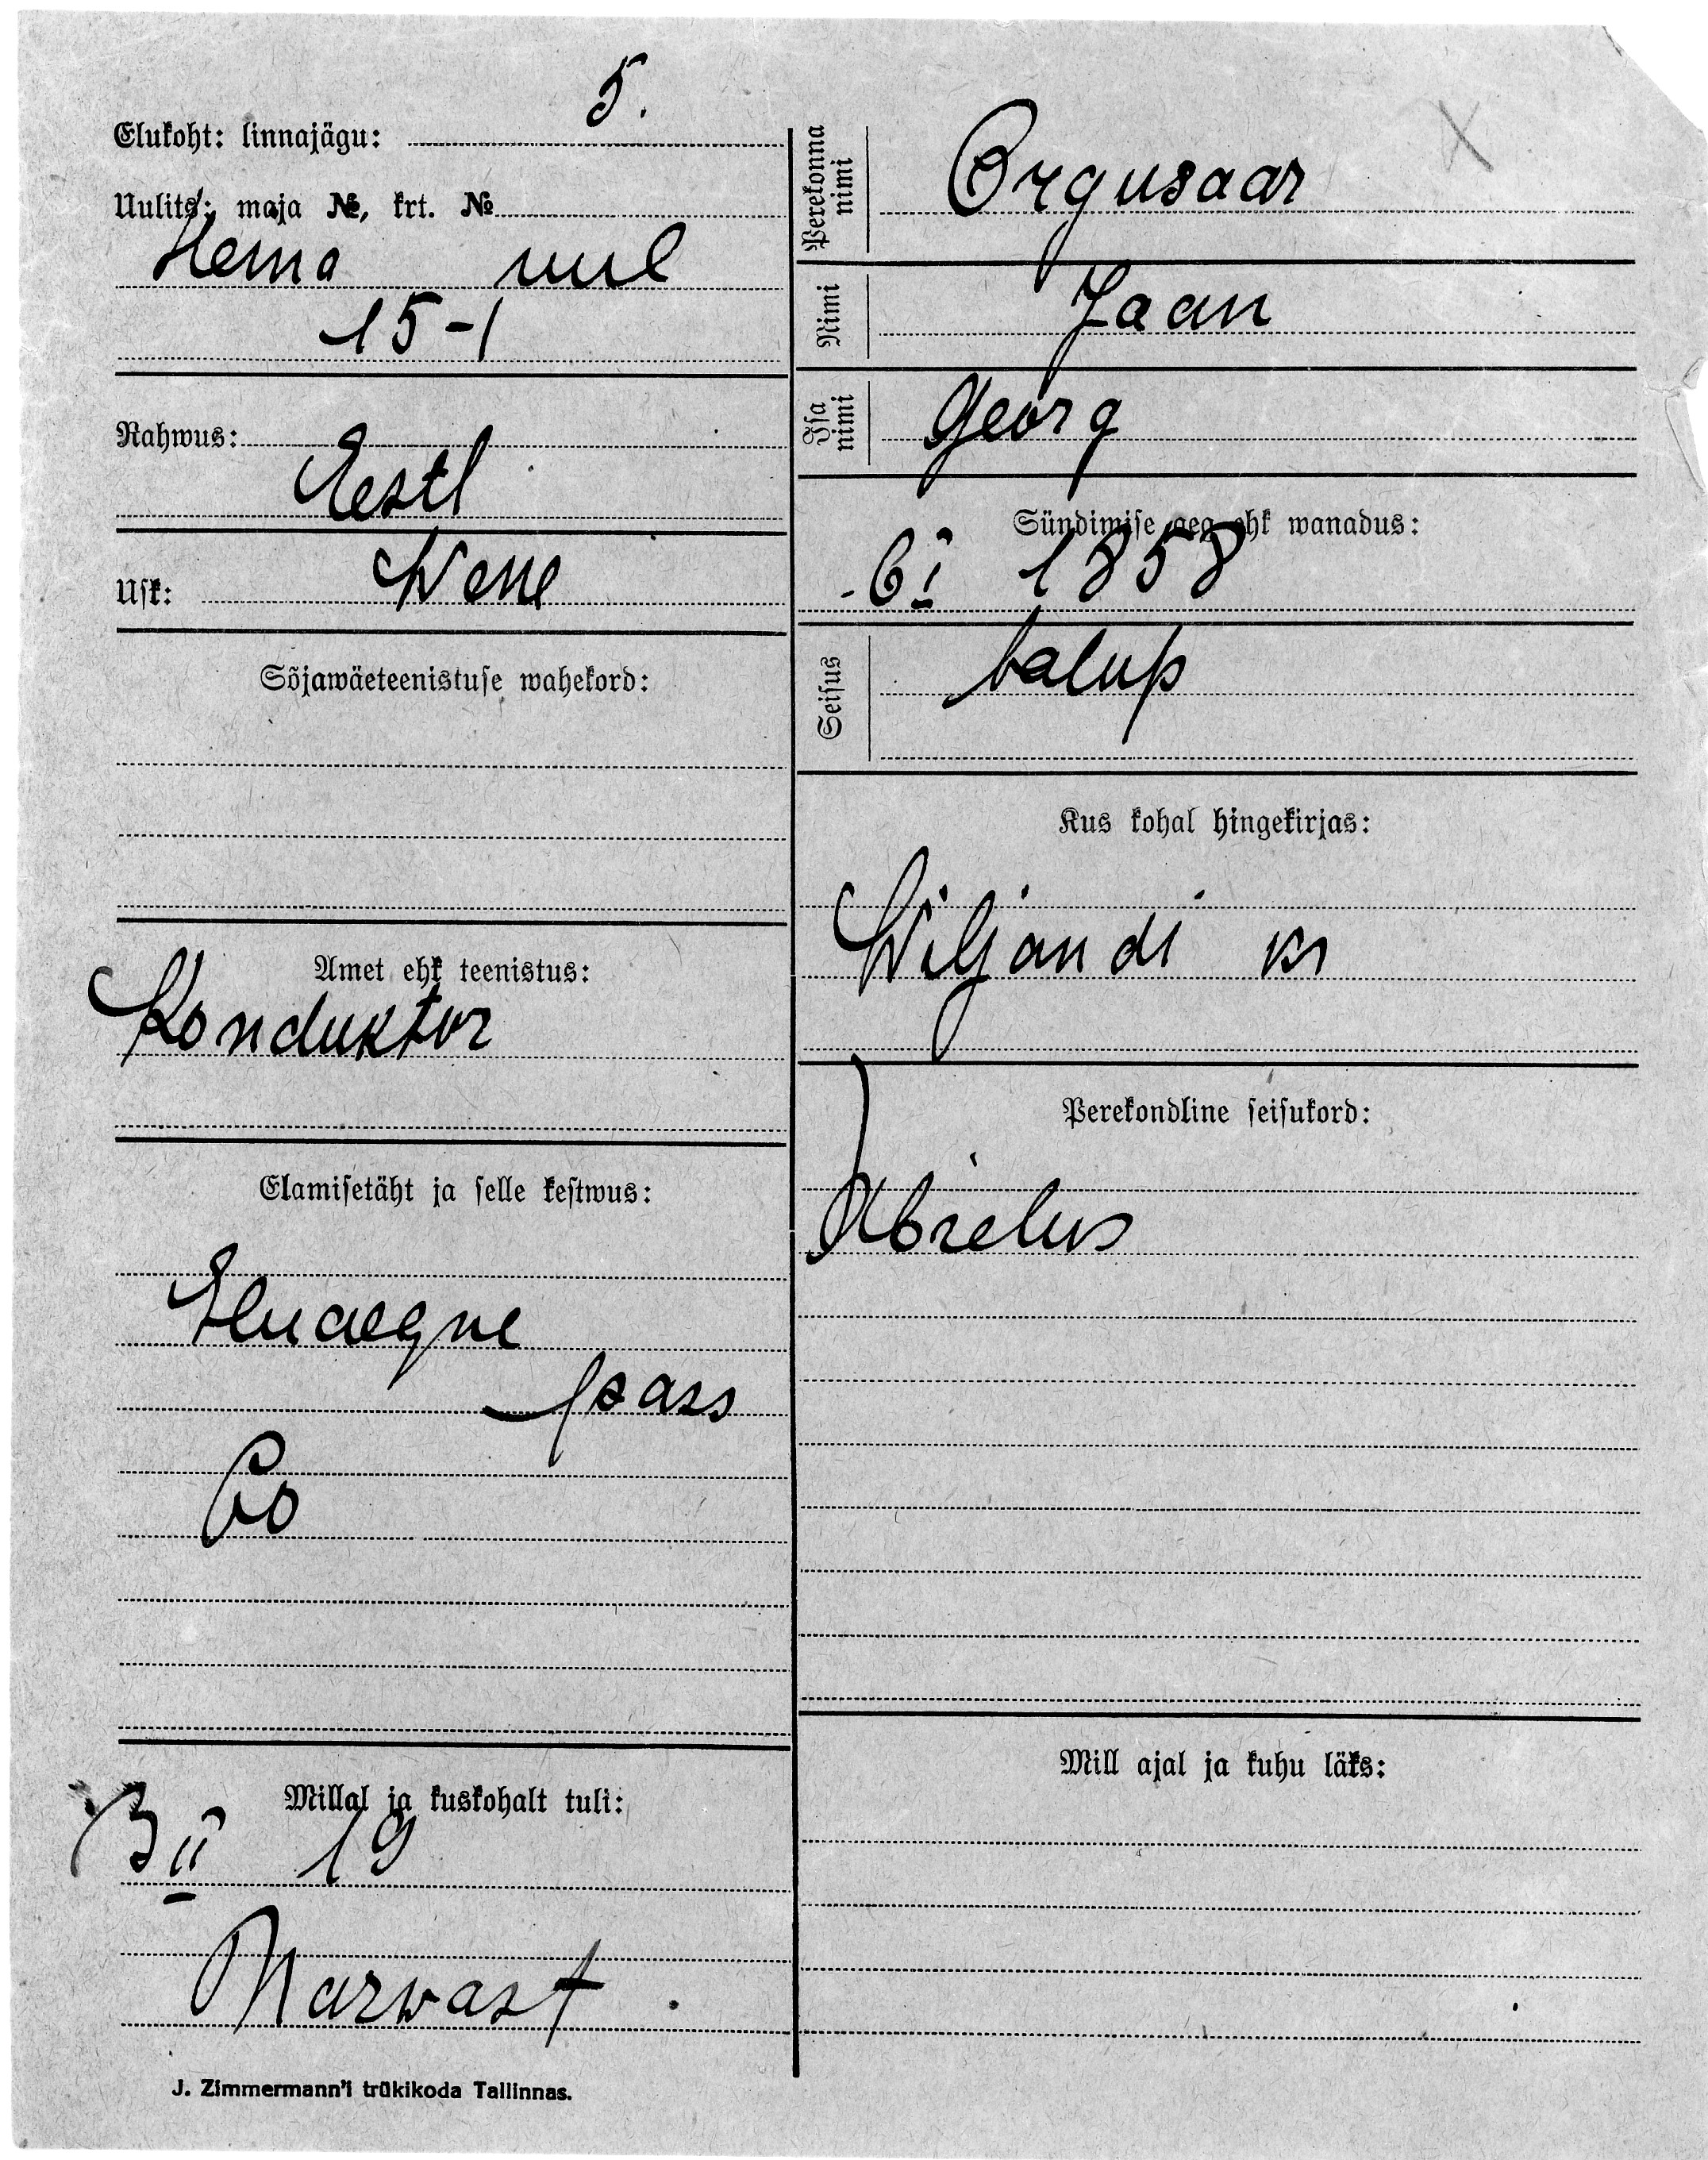 Elukoht: linnajägu: 5.
Uulits: maja №, krt. №
Heina uul
15-1
Rahwus:
Eestl
Usk: Wene
Sõjawäeteenistuse wahekord:
Amet ehk teenistus:
Konduktor
Elamisetäht ja selle kestwus:
Eluaegne
pass
Millal ja kuskohalt tuli:
3 II 19
Narwast
J. Zimmermann'i trükikoda Tallinnas.
Perekonna nimi
Orgusaar
Nimi
Jaan
Isa nimi
Georg
Sündimise aeg ehk wanadus:
6 I 1858
Seisus
talup
Kus kohal hingekirjas:
Wiljandi kr
Perekondline seisukord:
Abielus
Mill ajal ja kuhu läks: